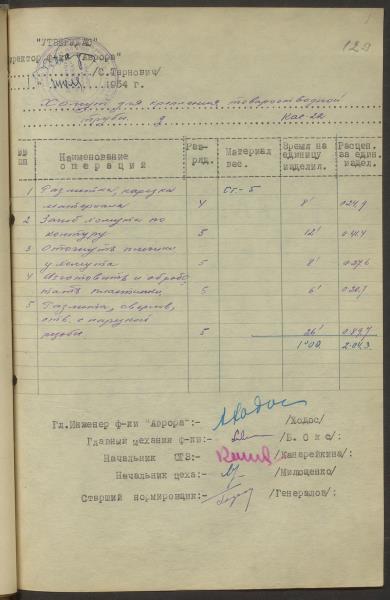 129
"УТВЕРЖДАЮ"
Директор ф-ка "Аврора"
/С. Тарнович/
1954 г.
Хомут для крепления пароотводной
трубы
№№ пп Наименование операций Раз-ряд. Материал вес. Время на единицу изделия. Расцен. за един. издел.
1 Разметка, нарезка Ст.-5
материала 4 8' 0-24,9
2 Загиб хомута по
контуру 5 12' 0-41,4
3 Отогнуть
у хомута 5 8' 0-27,6
4 Изготовить и обрабо-
тать 5 6' 0-20,7
5 Разметка, сверлов.
отв. с нарезкой
резьбы 5 26' 0-89,7
1°00 2-04,3
Гл. Инженер ф-ки "Аврора":- /Ходос/
Главный механик ф-ки:- /Б. О к с/:
Начальник :- /Канарейкина/:
Начальник цеха:- /Милощенко/
Старший нормировщик:- /Генералов/: